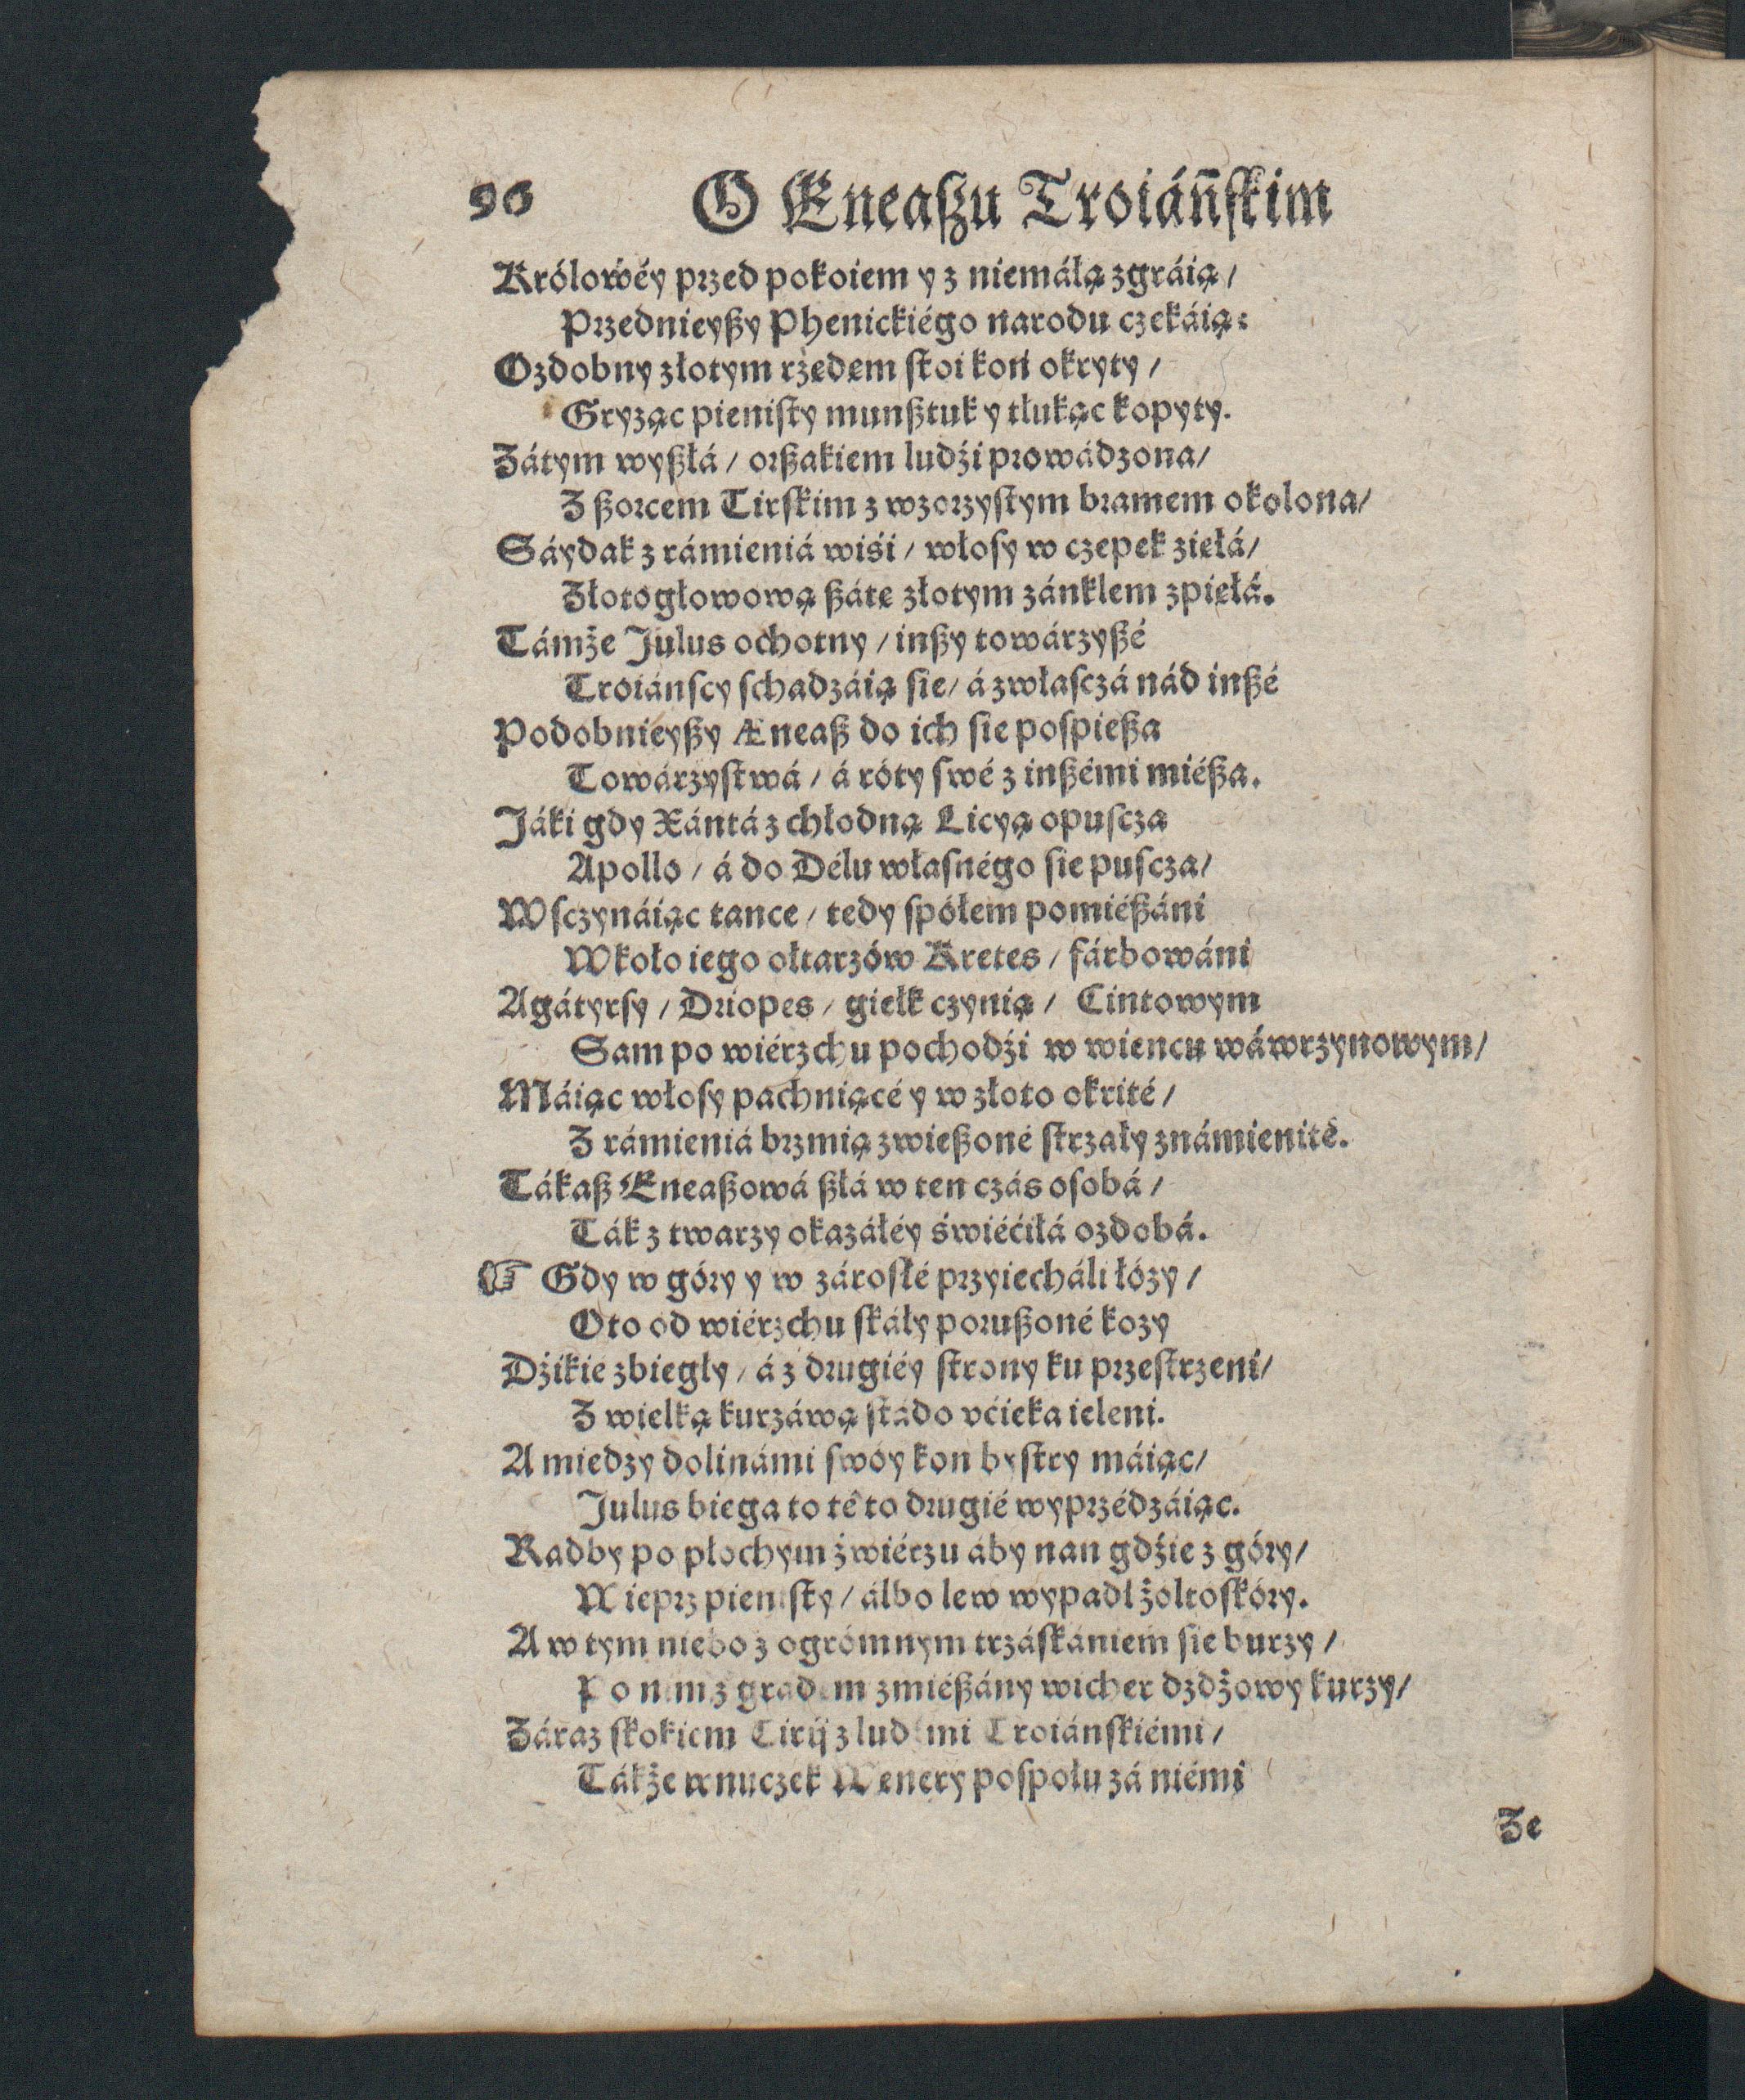 96 O Eneaßu Troiáñſkim
Królowéy przed pokoiem y z niemáłą zgráią/
Przednieyßy Phenickiégo narodu czekáią:
Ozdobny złotym rżędem ſtoi koń okryty/
Gryząc pieniſty munßtuk y tłukąc kopyty.
Zátym wyßłá/ orßakiem ludźi prowádzona/
Z ßorcem Tirſkim z wzorzyſtym bramem okolona/
Sáydak z rámieniá wiśi/ włoſy w czepek zięłá/
Złotogłowową ßátę złotym zánklem zpięłá.
Támże Julus ochotny/ inßy towárzyßé
Troiánſcy ſchadzáią ſie/ á zwłaſczá nád inßé
Podobnieyßy Æneaß do ich ſie poſpießa
Towárzyſtwá/ á róty ſwé z inßémi miéßa.
Jáki gdy Xántá z chłodną Licyą opuſcza
Apollo/ á do Délu właſnégo ſie puſcza/
Wſczynáiąc tance/ tedy ſpółem pomiéßáni
Wkoło iego ołtarzów Kretes/ fárbowáni
Agátyrſy/ Driopes/ giełk czynią/ Cintowym
Sam po wiérzchu pochodźi w wiencu wáwrzynowym/
Máiąc włoſy pachniącé y w złoto okrité/
Z rámieniá brzmią zwießoné ſtrzały známienité.
Tákaß Eneaßowá ßłá w ten czás oſobá/
Ták z twarzy okazáłéy świéćiłá ozdobá.
☞ Gdy w góry y w zároſłé przyiecháli łózy/
Oto od wiérzchu ſkáły porußoné kozy
Dźikie zbiegły/ á z drugiéy ſtrony ku przeſtrzeni/
Z wielką kurzáwą ſtádo vćieka ieleni.
A miedzy dolinámi ſwóy kon byſtry máiąc/
Julus biega to tê to drugié wyprzédzáiąc.
Radby po płochym źwiérzu áby nan gdźie z góry/
Wieprz pieniſty/ álbo lew wypadł żołtoſkóry.
A w tym niebo z ogrómnym trzáſkániem ſie burzy/
Po nim z gradem zmiéßány wicher dzdżowy kurzy/
Záraz ſkokiem Tirij z ludmi Troiánſkiémi/
Tákże wnuczek Wenery poſpołu zá niémi
Ze